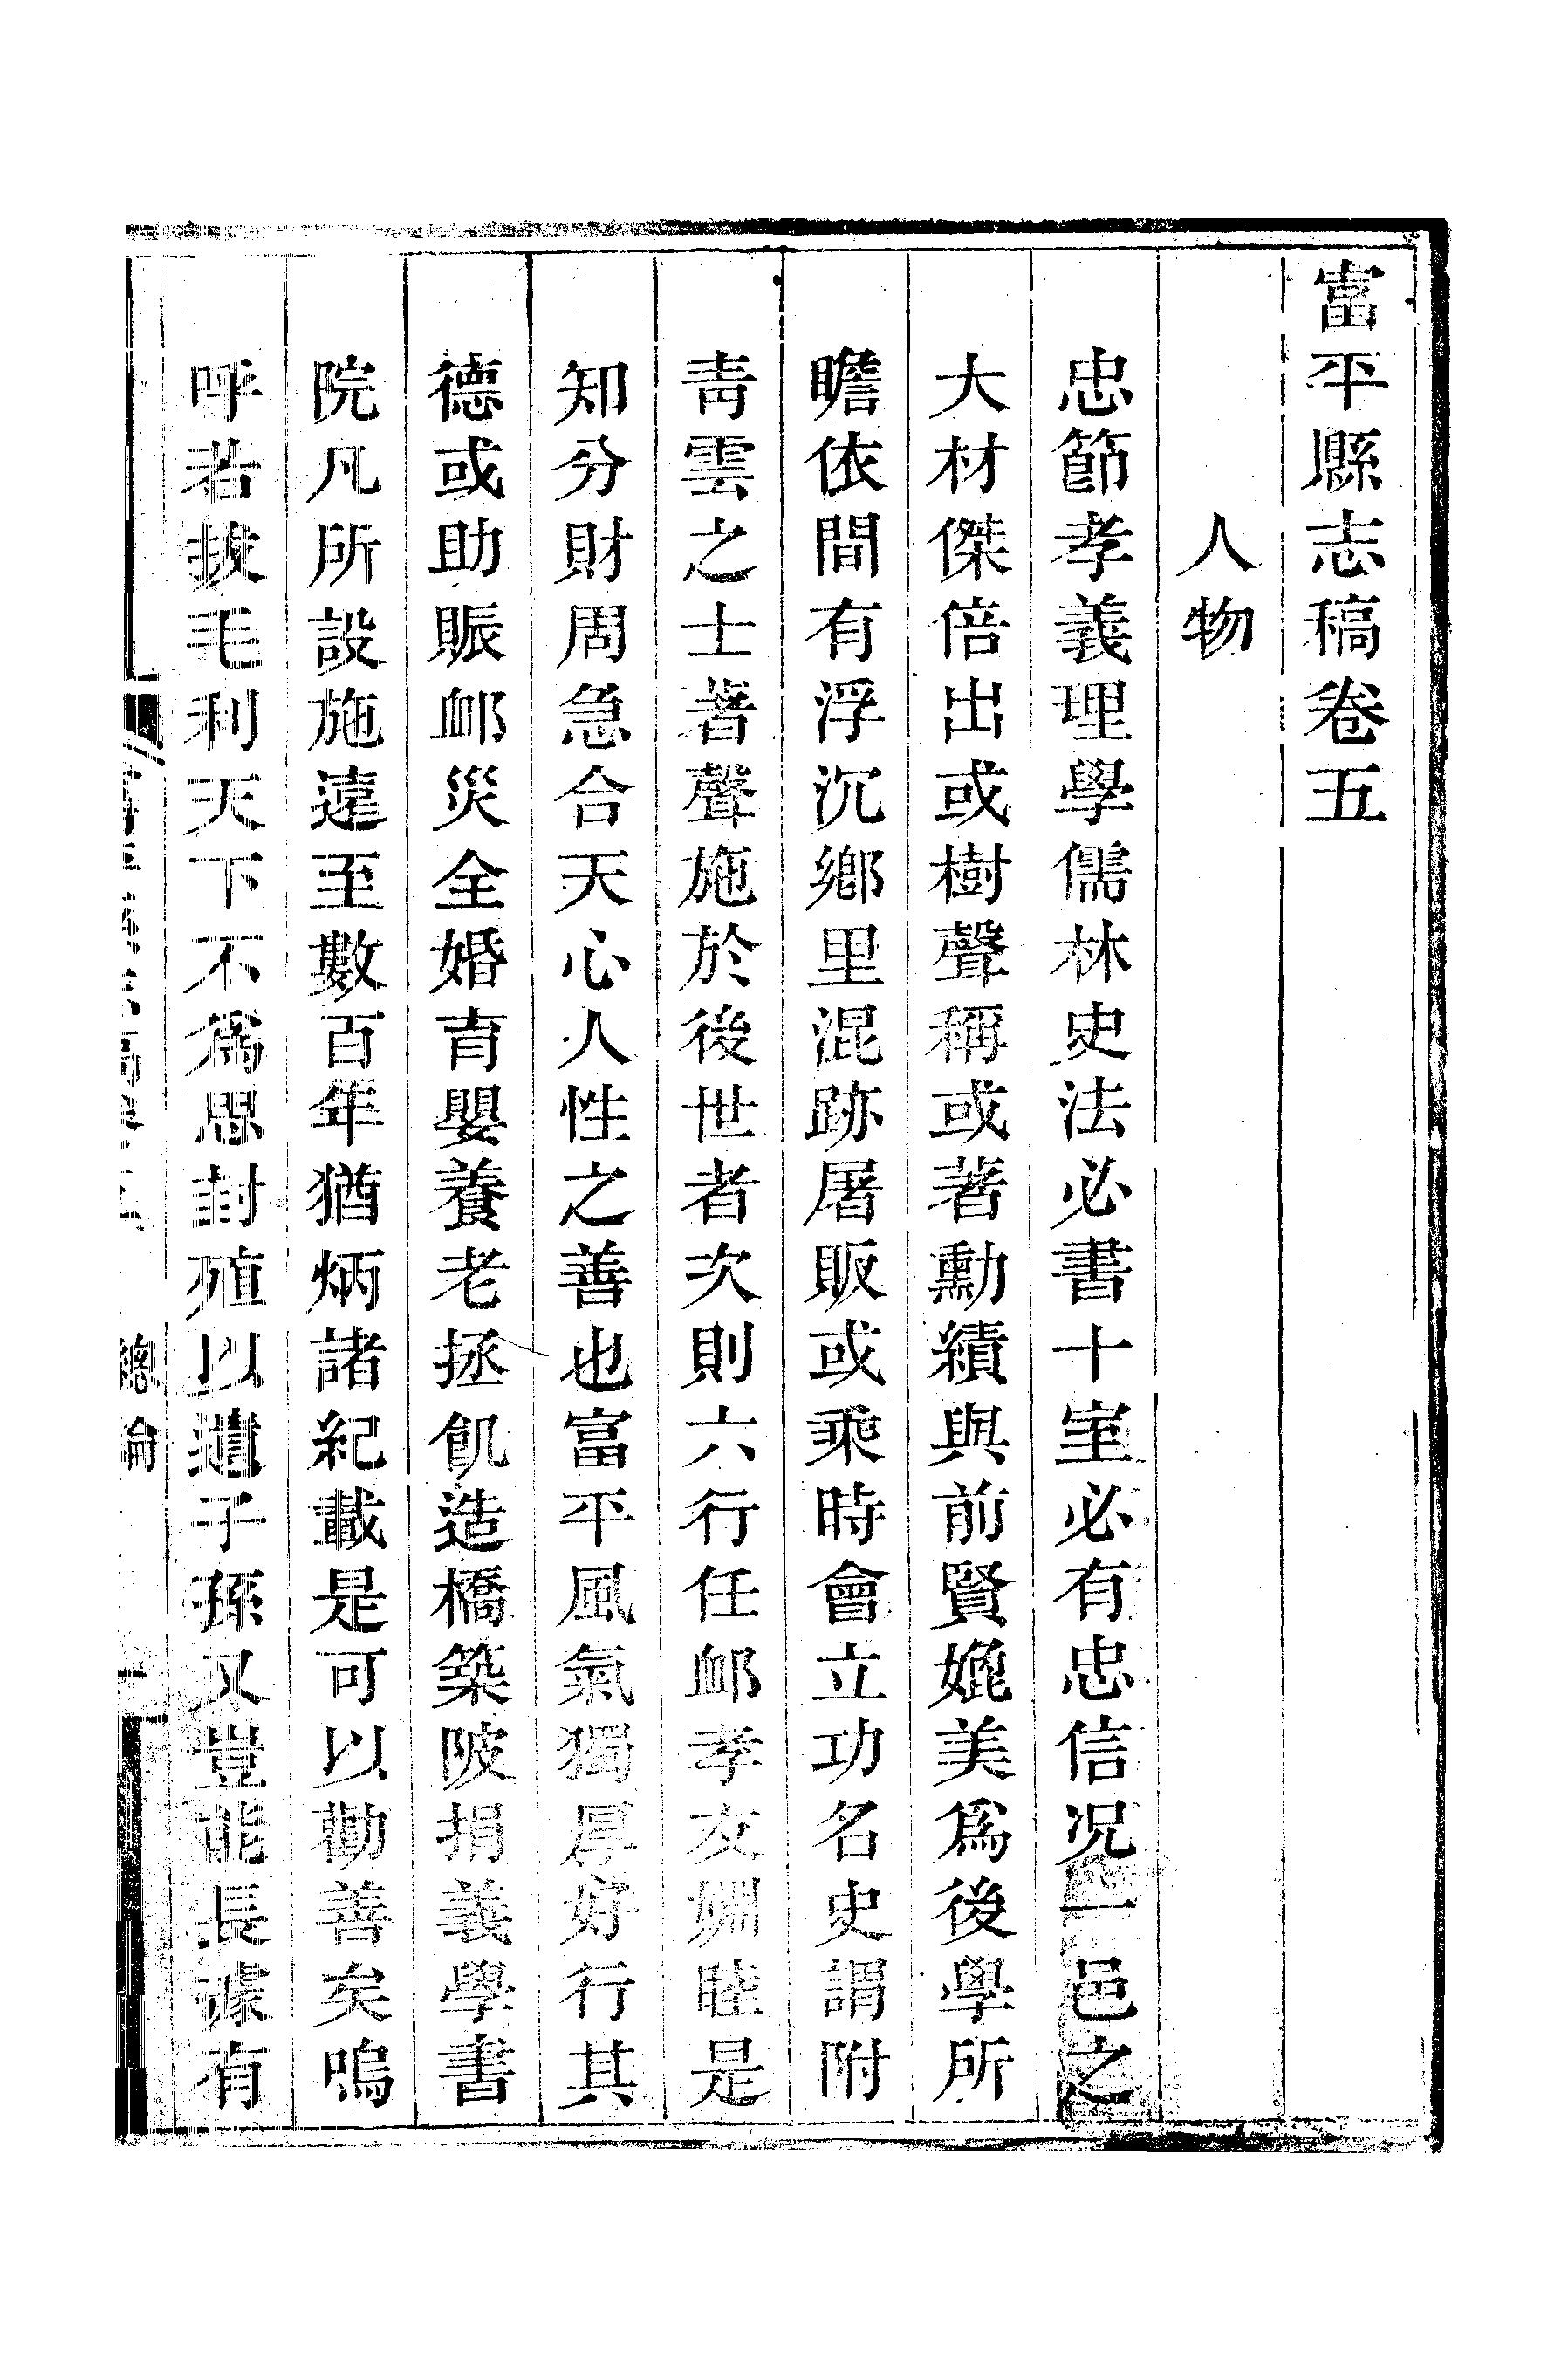 富平縣志稿卷五
人物
忠節孝義理學儒林史法必書十室必有忠信况一邑之
大材傑倍出或樹聲稱或著勳績與前賢媲美爲後學所
瞻依間有浮沉鄉里混跡屠販或乘時會立功名史謂附
靑雲之士著聲施於後世者次則六行任䘏孝友婣睦是
知分財周急合天心人性之善也富平風氣獨厚好行其
德或助賑䘏災全婚育嬰養老拯飢造橋築陂捐義學書
院凡所設施遠至數百年猶炳諸紀載是可以勸善矣嗚
呼若拔毛利天下不爲思封殖以遺子孫又豈能長據有
富平縣志稿卷五 總論 一